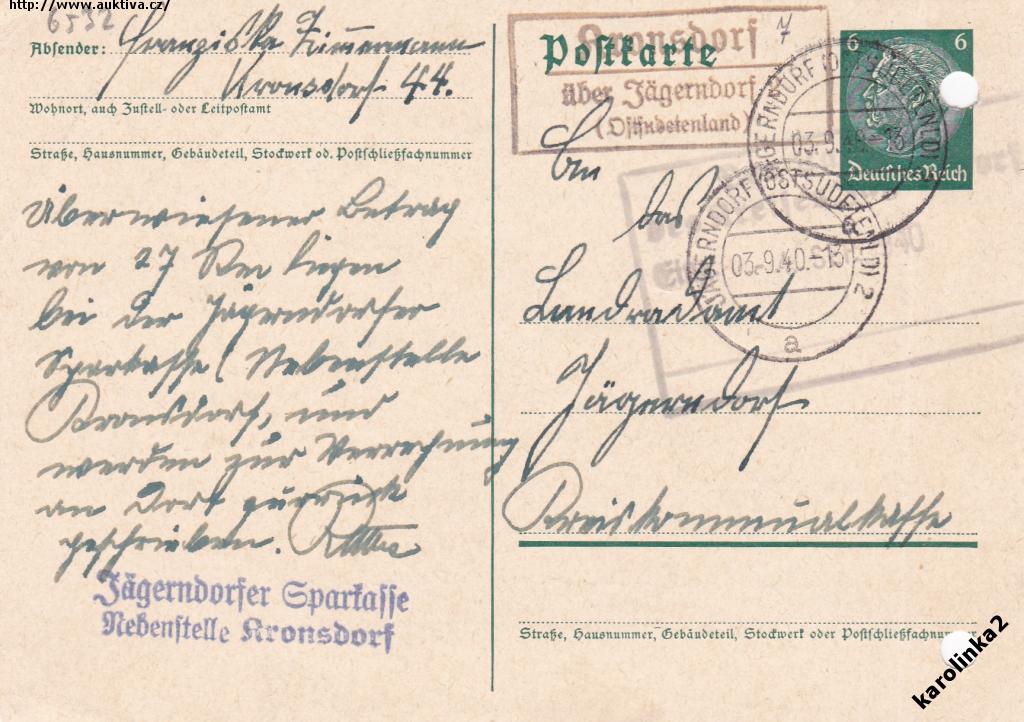 http://www.auktiva.cz/
6532
Absender: Franziska Zimmermann
Kronsdorf 44.
Wohnort, auch Zustell- oder Leitpostamt
Straße, Hausnummer, Gebäudeteil, Stockwerk od. Postschließfachnummer
Überwiesener Betrag
von 27 RM liegen
bei der Jägerndorfer
Sparkasse (Nebenstelle
Kronsdorf, und
werden zur Verrechnung
an Dort zurück
geschrieben.
Jägerndorfer Sparkasse
Nebenstelle Kronsdorf
Postkarte
Kronsdorf
über Jägerndorf
(Ostsudetenland)
7
6 6
Deutsches Reich
JÄGERNDORF (OSTSUDETENLD)
03.9.40.-13
JÄGERNDORF (OSTSUDETENLD) 2
03.9.40.-13
a
An
das
Landradamt
Jägerndorf
Kreiskommunalkasse
Straße, Hausnummer, Gebäudeteil, Stockwerk oder Postschließfachnummer
karolinka2